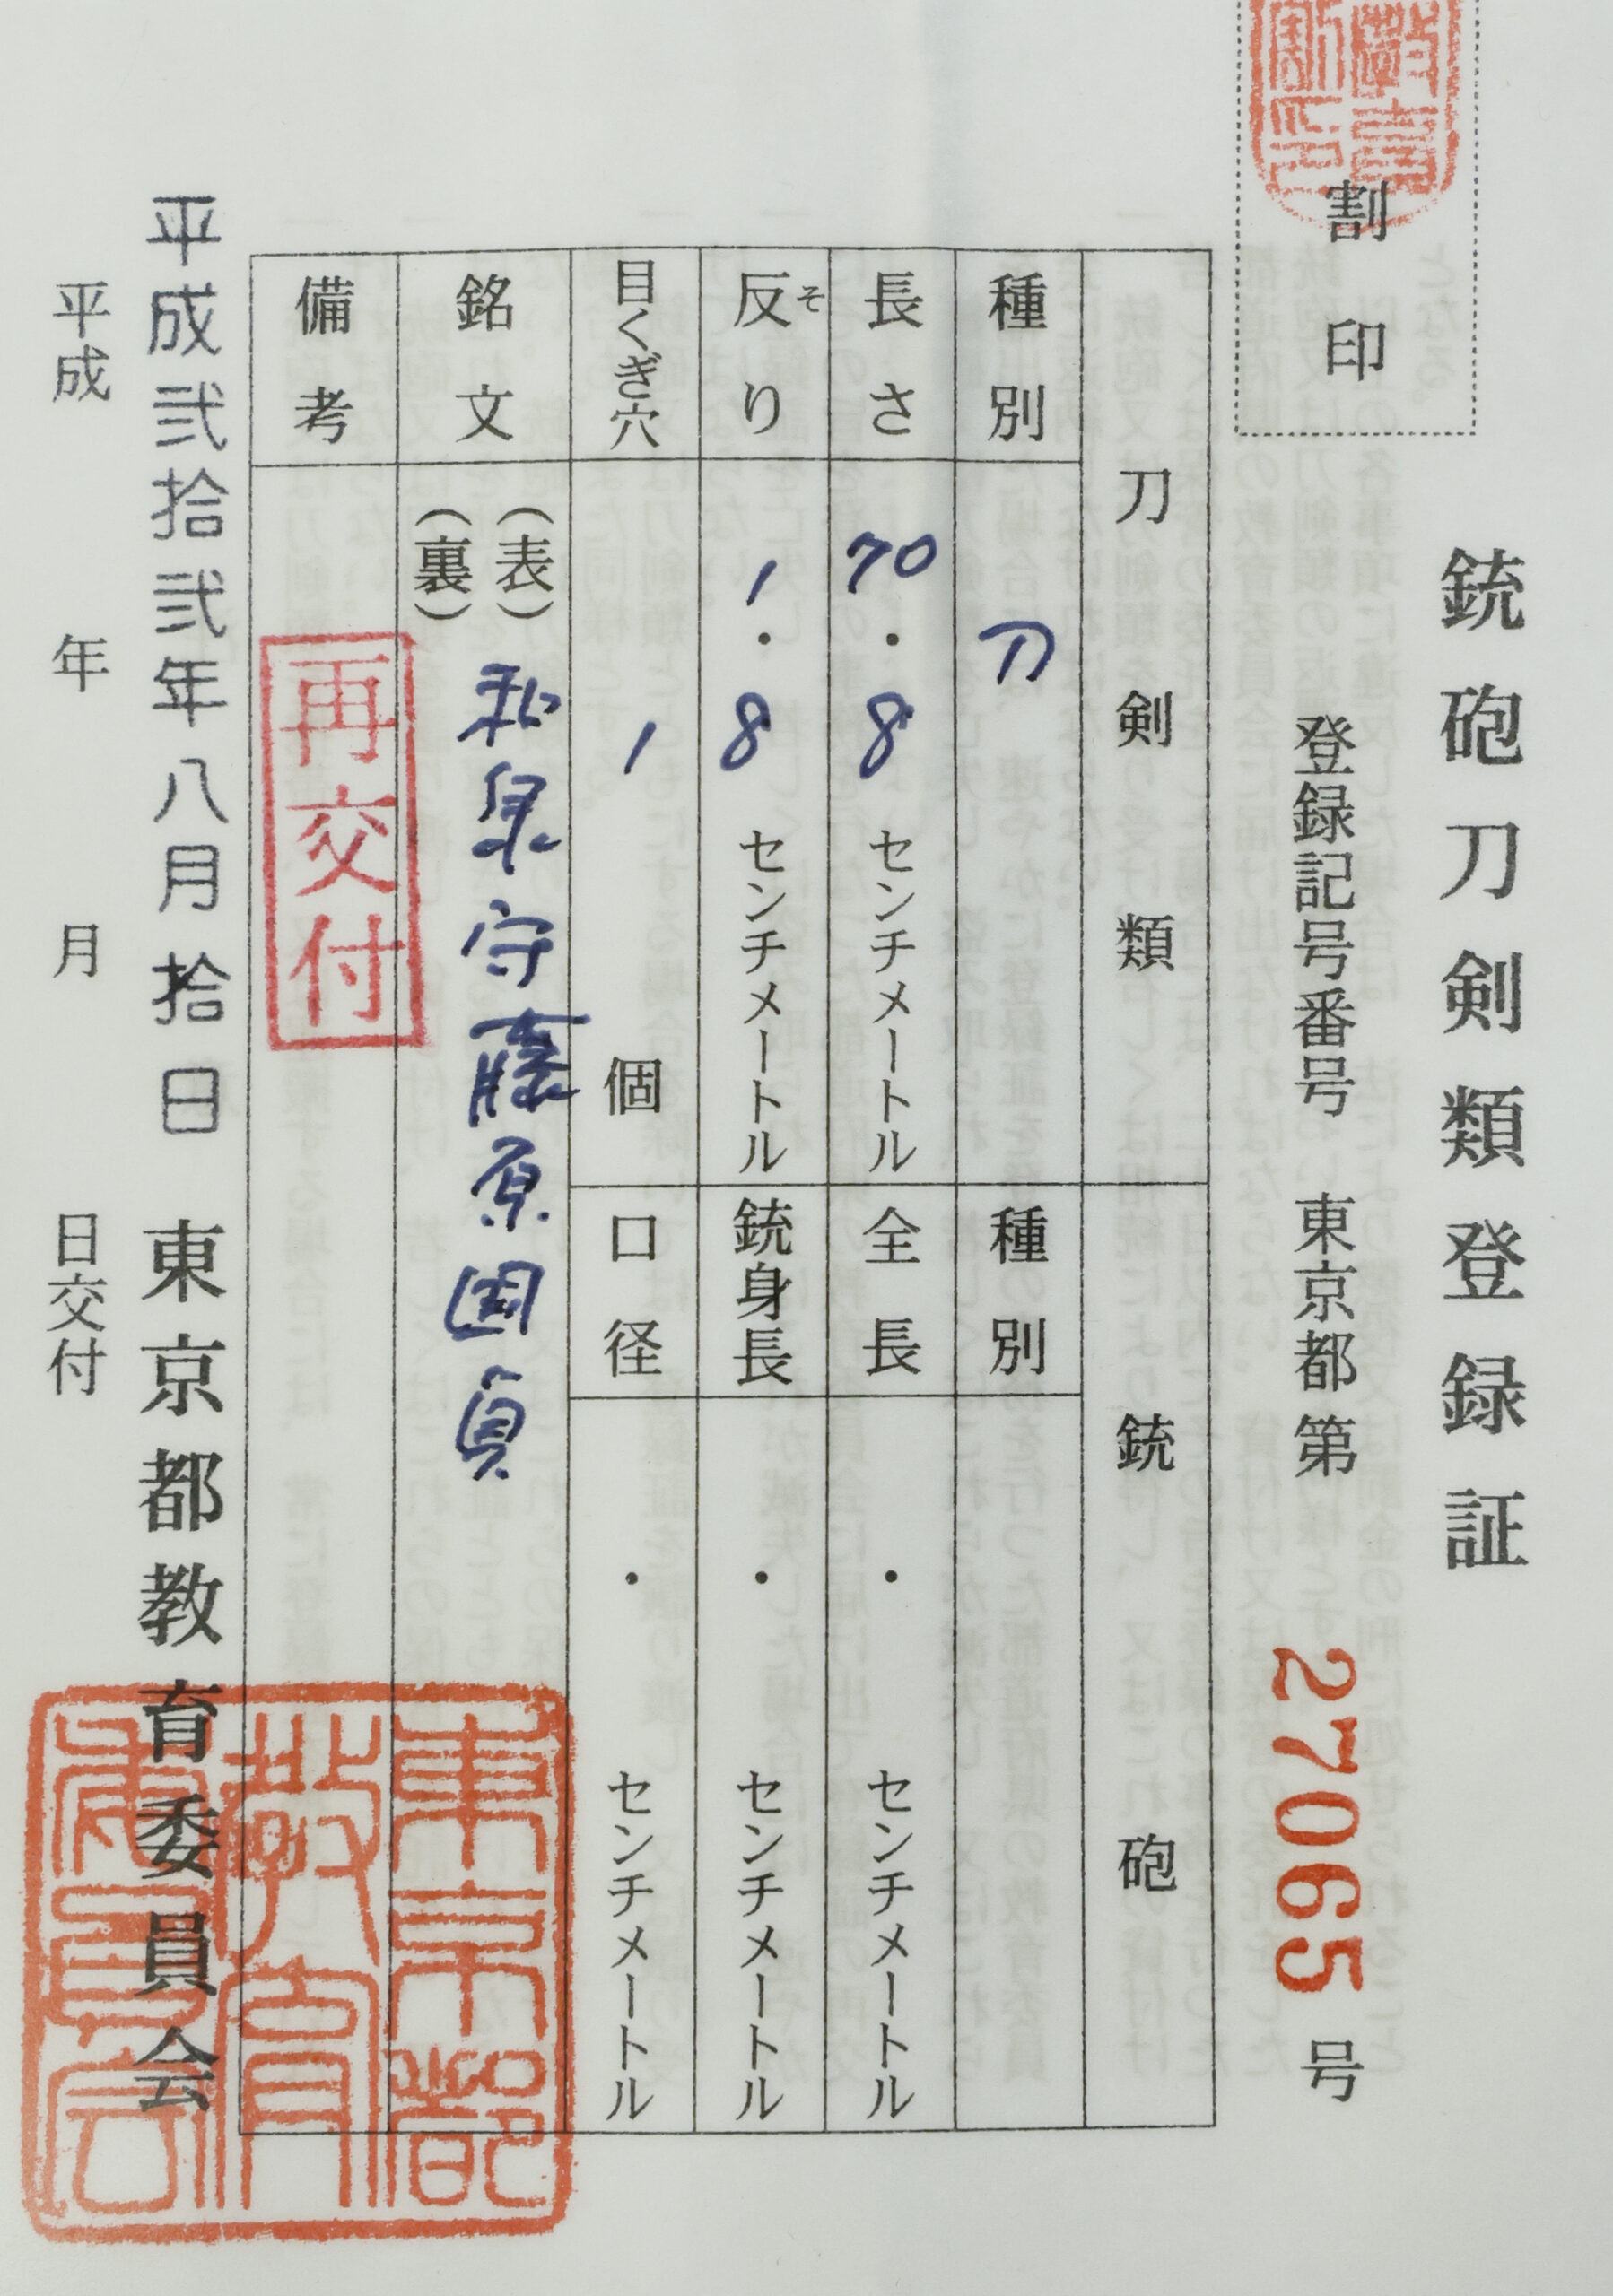 銃砲刀剣類登録証
割印
登録記号番号 東京都 第 27065 号
刀剣類 銃砲
種別 刀 種別
長さ 70.8 センチメートル 全長 ・ センチメートル
反り そ 1.8 センチメートル 銃身長 ・ センチメートル
目くぎ穴 1 個 口径 ・ センチメートル
銘文 (表) 和泉守藤原国貞
(裏)
備考
再交付
平成弐拾弐年八月拾日 東京都教育委員会
平成 年 月 日交付
東京都
教育
委員会